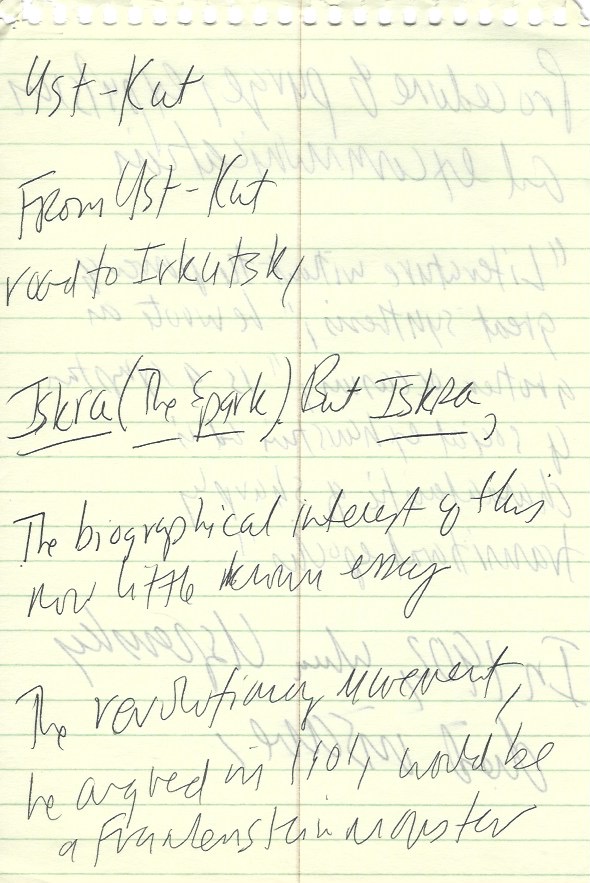 Ust-Kut
From Ust-Kut
road to Irkutsk,
Iskra (The Spark). But Iskra,
The biographical interest of this
now little known essay
The revolutionary movement,
he argued in 1901, would be
a Frankenstein monster